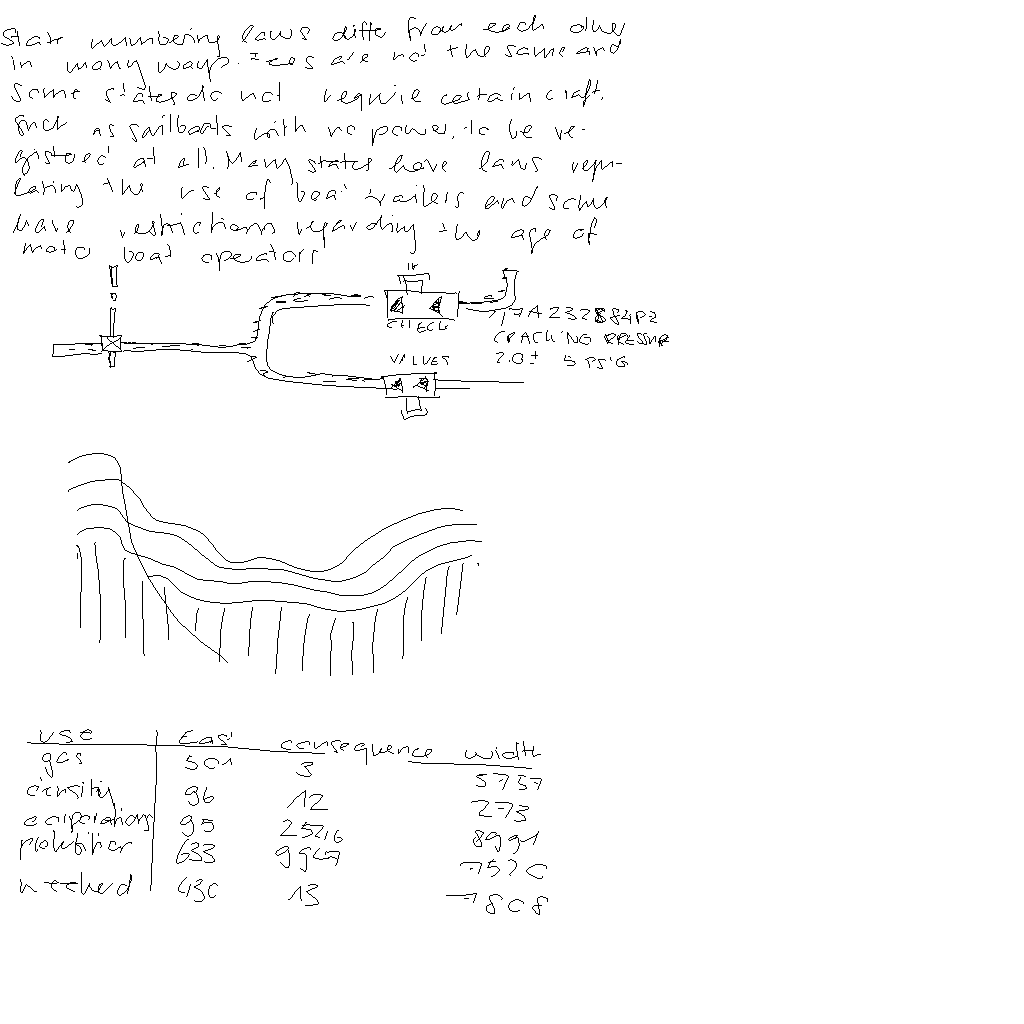 State numbering laws differ from each other
in many ways. Fees are not the same and
some states do not require certain craft,
such as sailboats with no power, to be re-
gistered at all. Many states have laws regu-
lating the use of boat trailers and some
have restrictions regarding the age of
motor boat operators
CHECK
7A232884P2
CRACKING PRESSURE
VALVES
2.0 ± 5 PSIG
use East consequence width
gas 501 3 5757
density 96 12 273
95 25216 8991
633 9947 7520
method 430 13 7808